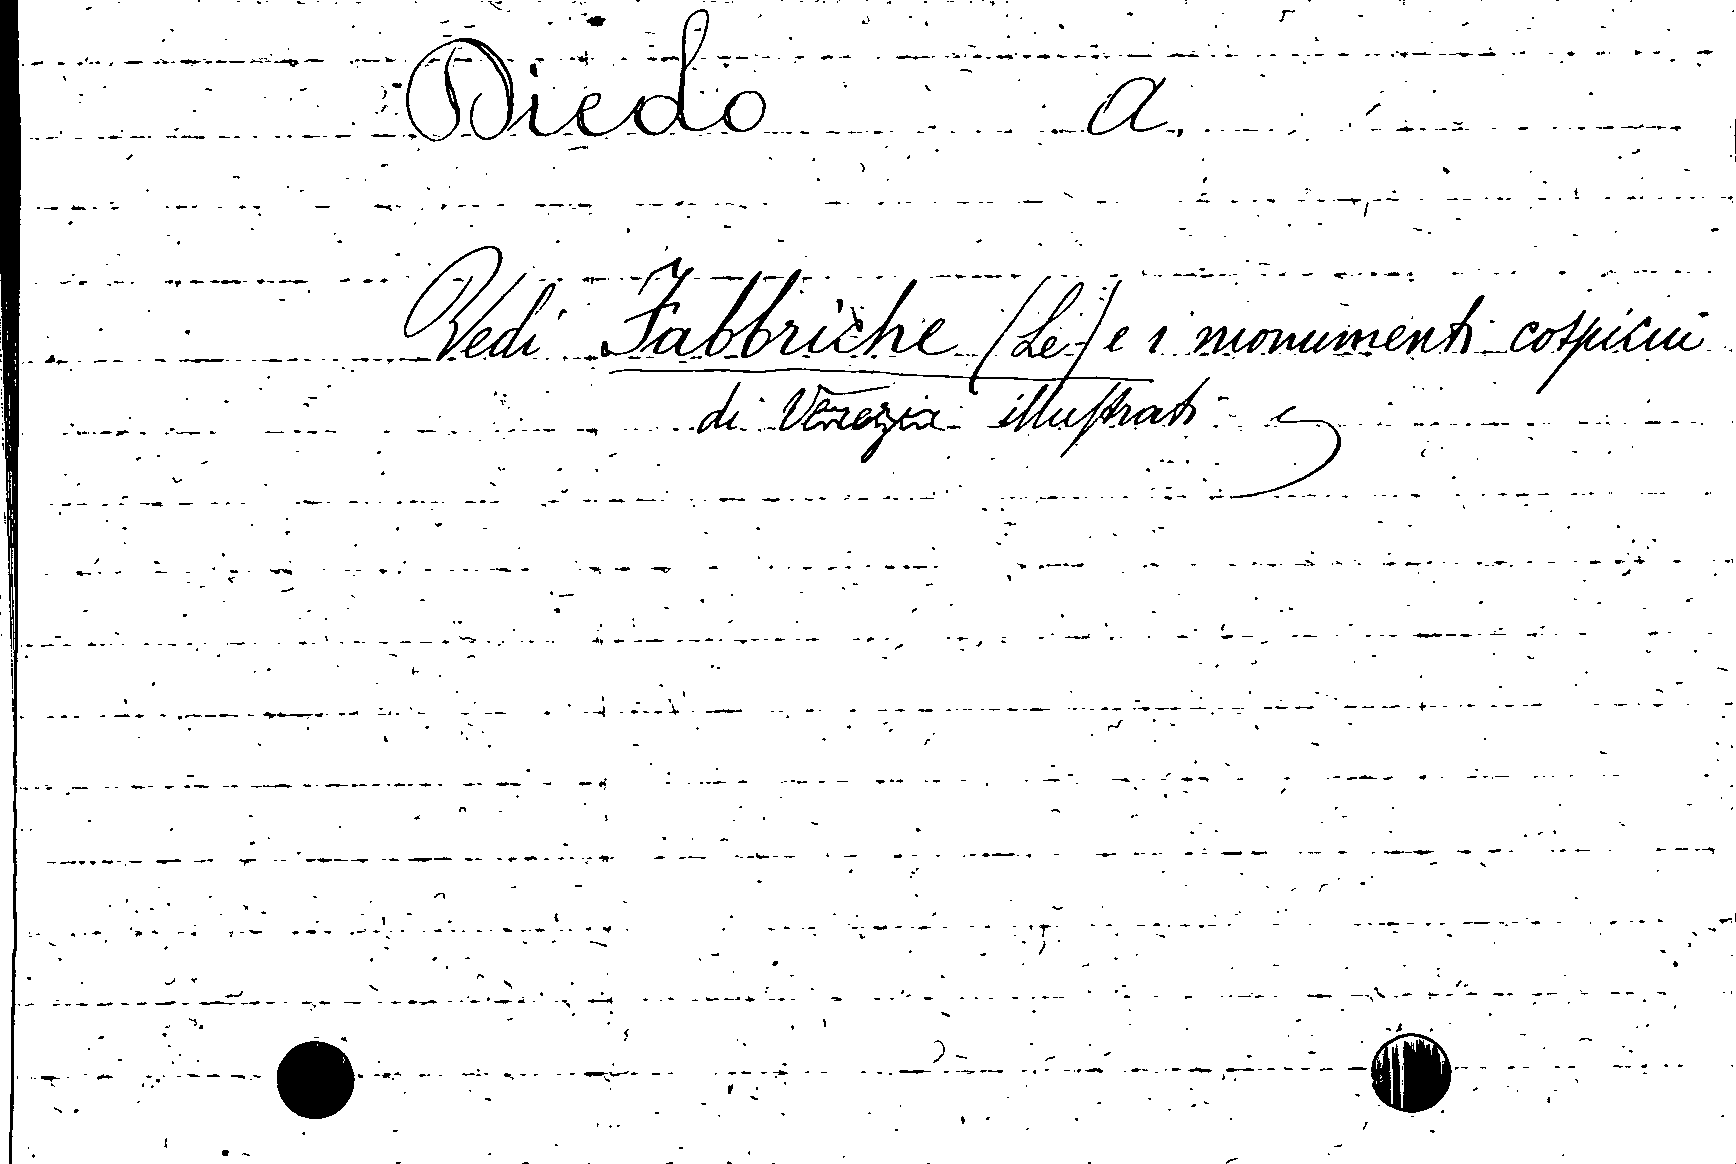 Diedo A.
Vedi Fabbriche (Le) e i monumenti cospicui
di Venezia illustrati